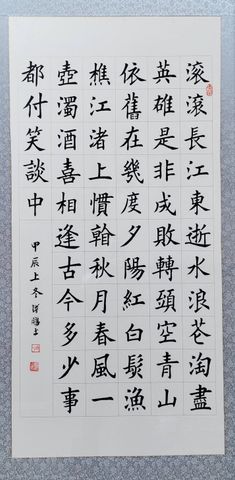 滾滾長江東逝水浪花淘盡
英雄是非成敗轉頭空青山
依舊在幾度夕陽紅白髮漁
樵江渚上慣看秋月春風一
壺濁酒喜相逢古今多少事
都付笑談中
甲辰上冬